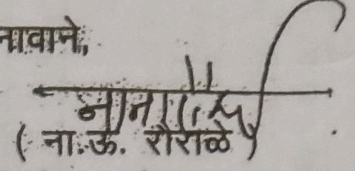 नावाने,
( ना.ऊ. रौराळे